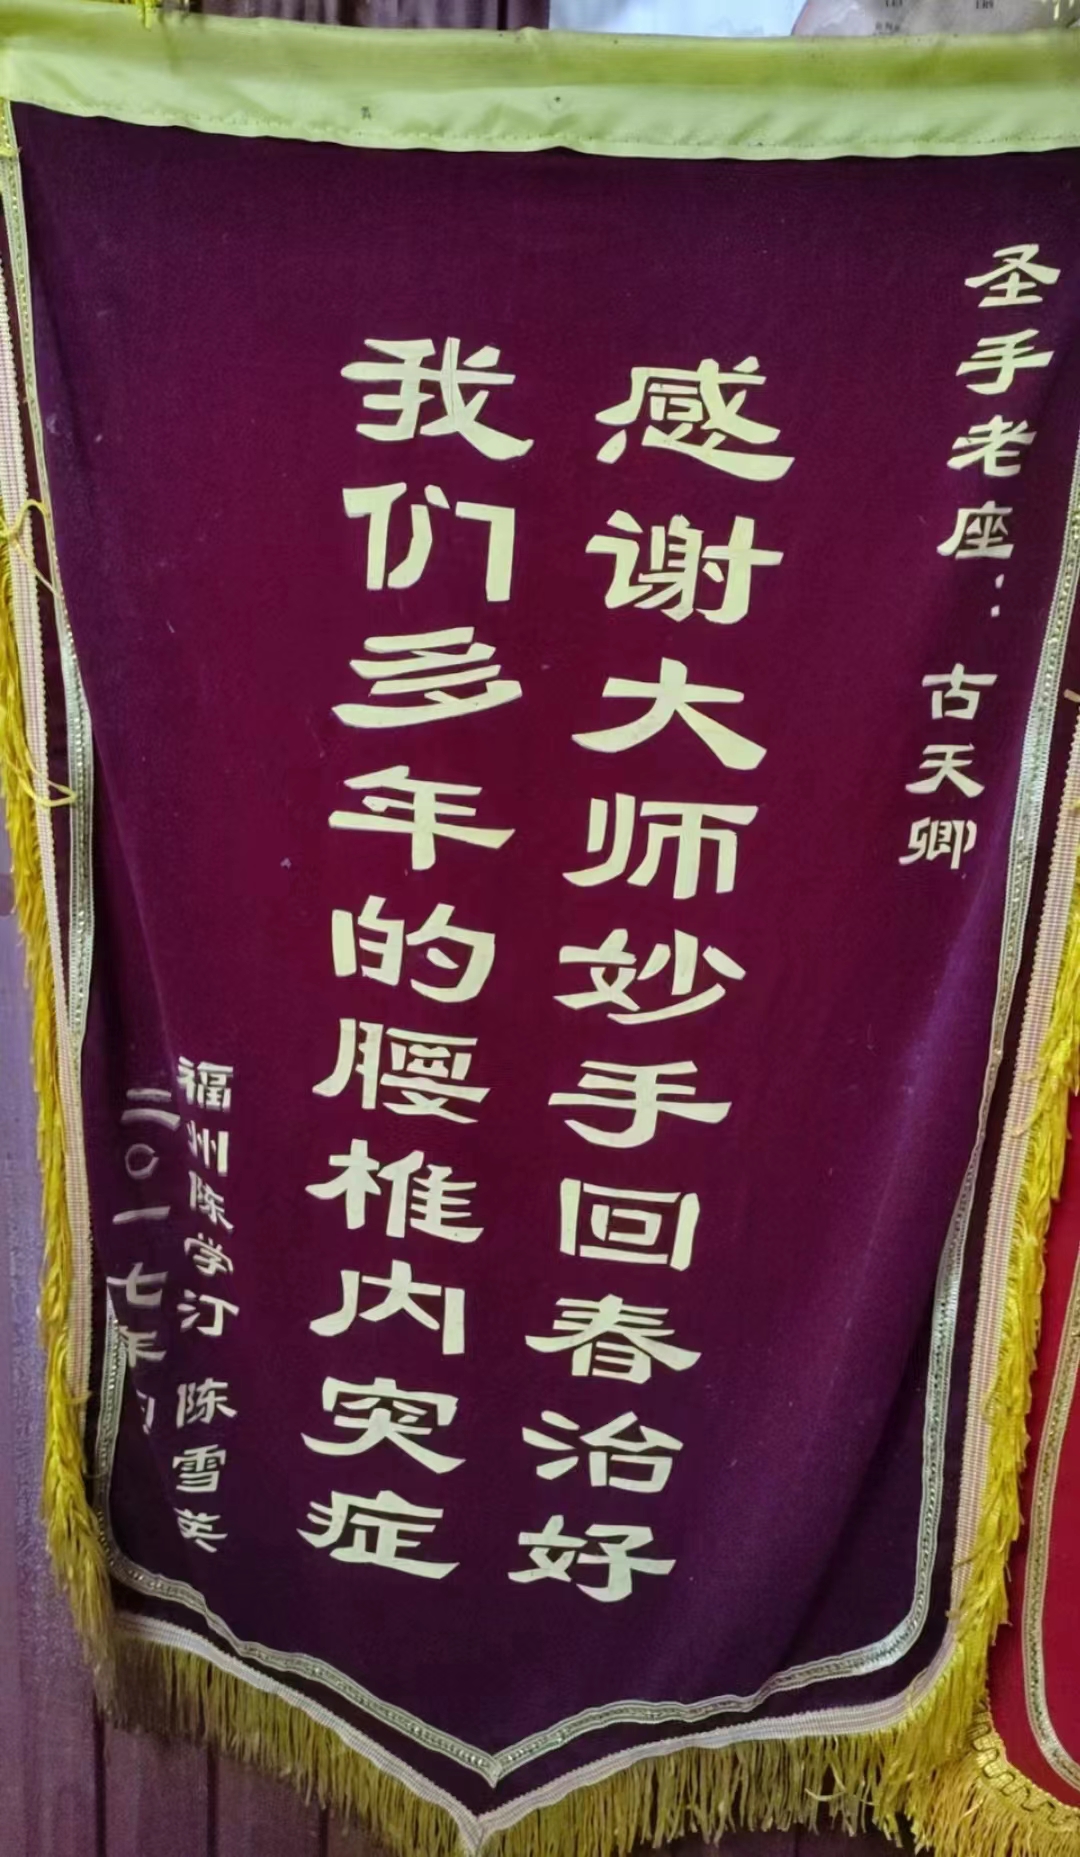 圣手老座：古天卿
感谢大师妙手回春治好
我们多年的腰椎内突症
福州陈学汀 陈雪英
二〇一七年